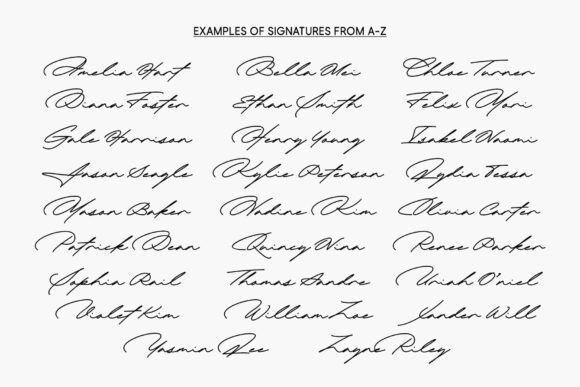 EXAMPLES OF SIGNATURES FROM A-Z
Amelia Hart Bella Mei Chloe Turner
Diana Foster Ethan Smith Felix Mori
Gale Harrison Henry Young Isabel Naomi
Jason Seagle Kylie Peterson Lydia Tessa
Mason Baker Nadine Kim Olivia Carter
Patrick Dean Quincy Nina Renee Parker
Sophia Rail Thomas Andre Uriah O'niel
Violet Kim William Zoe Xander Will
Yasmin Lee Zayne Riley